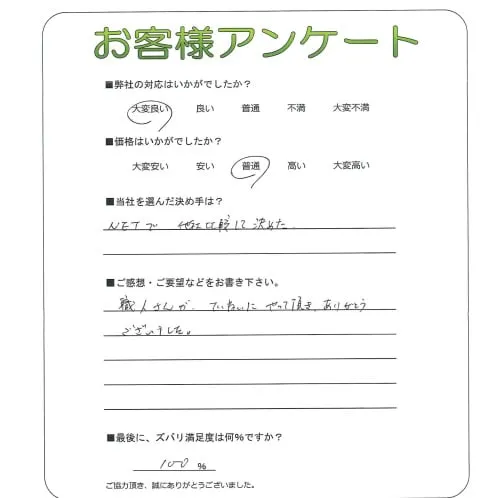 お客様アンケート
■弊社の対応はいかがでしたか？
大変良い 良い 普通 不満 大変不満
■価格はいかがでしたか？
大変安い 安い 普通 高い 大変高い
■当社を選んだ決め手は？
NETで 他社比較して決めた。
■ご感想・ご要望などをお書き下さい。
職人さんが、ていねいに やって頂き、ありがとう
ございました。
■最後に、ズバリ満足度は何%ですか？
100 %
ご協力頂き、誠にありがとうございました。